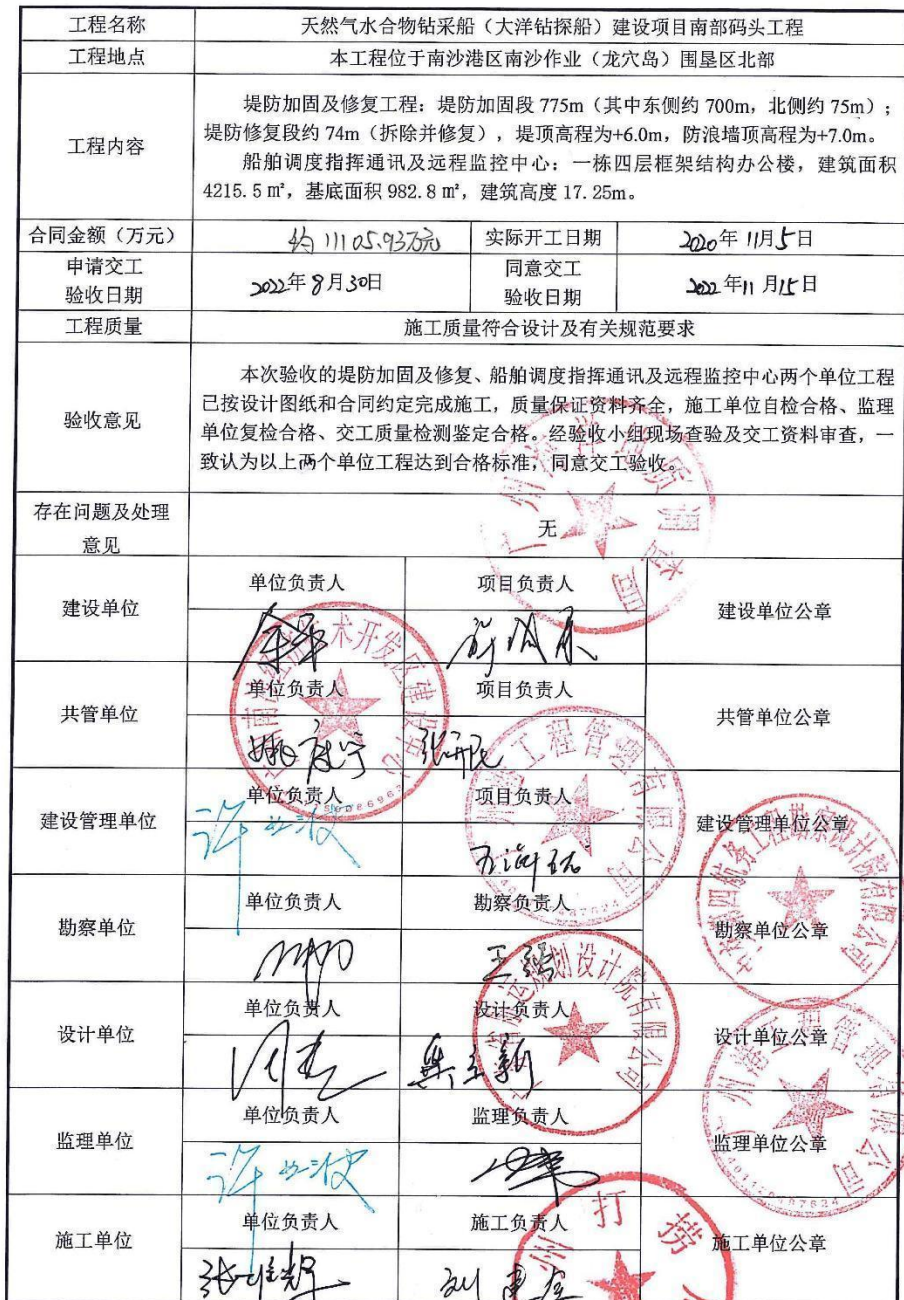 工程名称 天然气水合物钻采船（大洋钻探船）建设项目南部码头工程
工程地点 本工程位于南沙港区南沙作业（龙穴岛）围垦区北部
工程内容
堤防加固及修复工程：堤防加固段 775m（其中东侧约 700m，北侧约 75m）；
堤防修复段约 74m（拆除并修复），堤顶高程为+6.0m，防浪墙顶高程为+7.0m。
船舶调度指挥通讯及远程监控中心：一栋四层框架结构办公楼，建筑面积
4215.5 ㎡，基底面积 982.8 ㎡，建筑高度 17.25m。
合同金额（万元） 约 11105.93万元 实际开工日期 2020年 11月5日
申请交工
验收日期
2022年8月30日
同意交工
验收日期
2022年11月15日
工程质量 施工质量符合设计及有关规范要求
验收意见
本次验收的堤防加固及修复、船舶调度指挥通讯及远程监控中心两个单位工程
已按设计图纸和合同约定完成施工，质量保证资料齐全，施工单位自检合格、监理
单位复检合格、交工质量检测鉴定合格。经验收小组现场查验及交工资料审查，一
致认为以上两个单位工程达到合格标准，同意交工验收。
存在问题及处理
意见
无
建设单位 单位负责人 项目负责人 建设单位公章
共管单位 单位负责人 项目负责人 共管单位公章
建设管理单位 单位负责人 项目负责人 建设管理单位公章
勘察单位 单位负责人 勘察负责人 勘察单位公章
王强
设计单位 单位负责人 设计负责人 设计单位公章
监理单位 单位负责人 监理负责人 监理单位公章
施工单位 单位负责人 施工负责人 施工单位公章